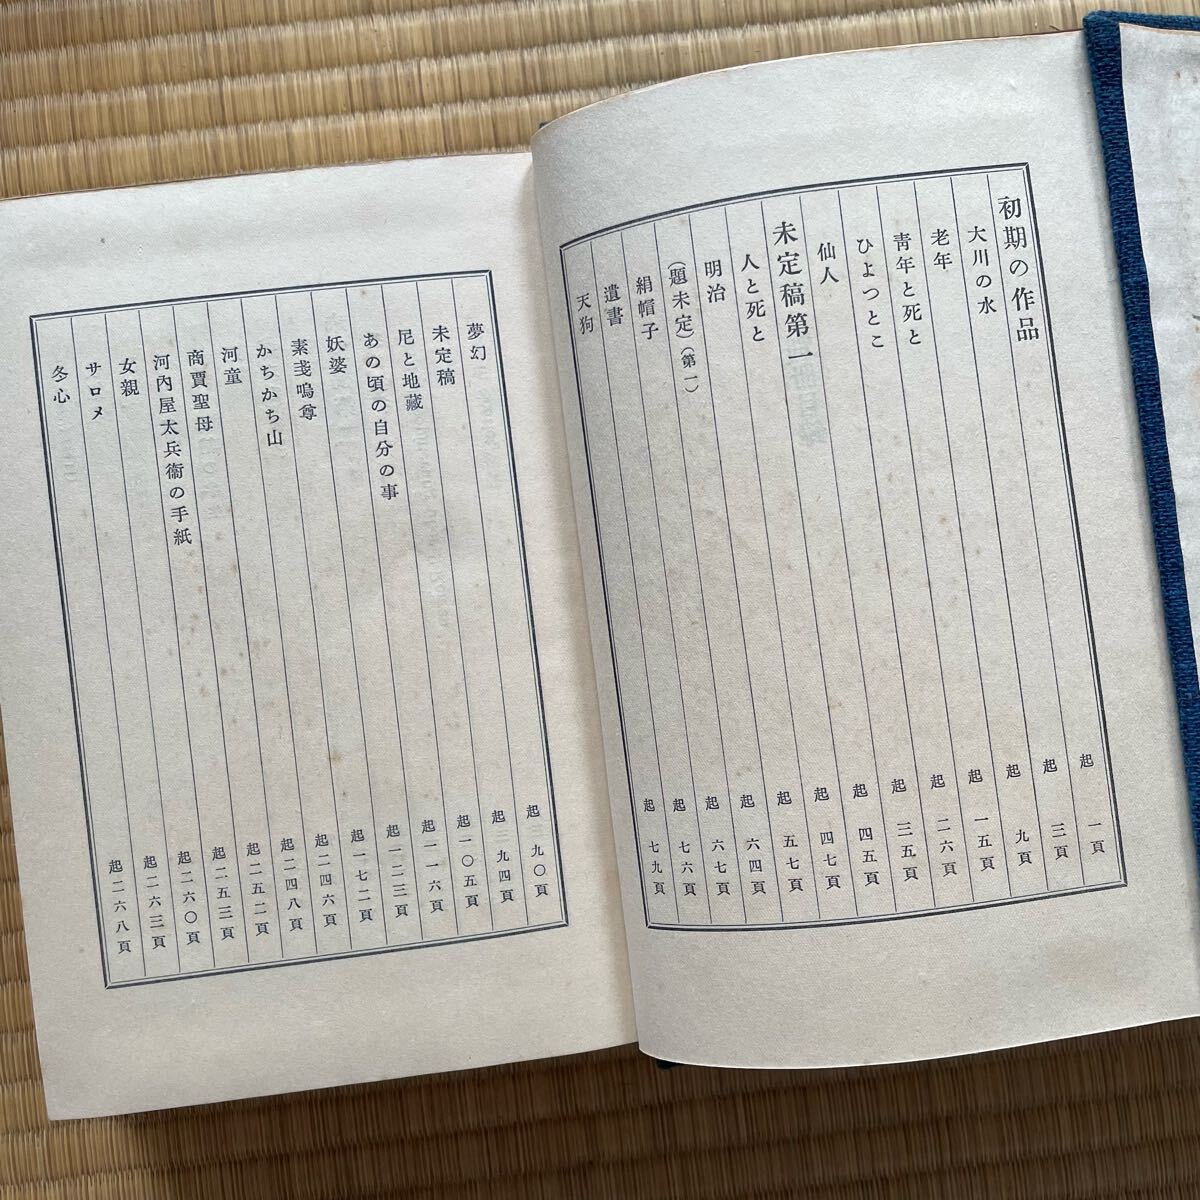 初期の作品 起 一頁
大川の水 起 三頁
老年 起 九頁
青年と死と 起 一五頁
ひよつとこ 起 二六頁
仙人 起 三五頁
未定稿第一 起 四五頁
人と死と 起 四七頁
明治 起 五七頁
(題未定)(第一) 起 六四頁
絹帽子 起 六七頁
遺書 起 七六頁
天狗 起 七九頁
夢幻 起 九〇頁
未定稿 起 九四頁
尼と地藏 起一〇五頁
あの頃の自分の事 起一一六頁
妖婆 起一二三頁
素戔嗚尊 起一七二頁
かちかち山 起二四六頁
河童 起二四八頁
商賈聖母 起二五二頁
河內屋太兵衞の手紙 起二五三頁
女親 起二六〇頁
サロメ 起二六三頁
冬心 起二六八頁